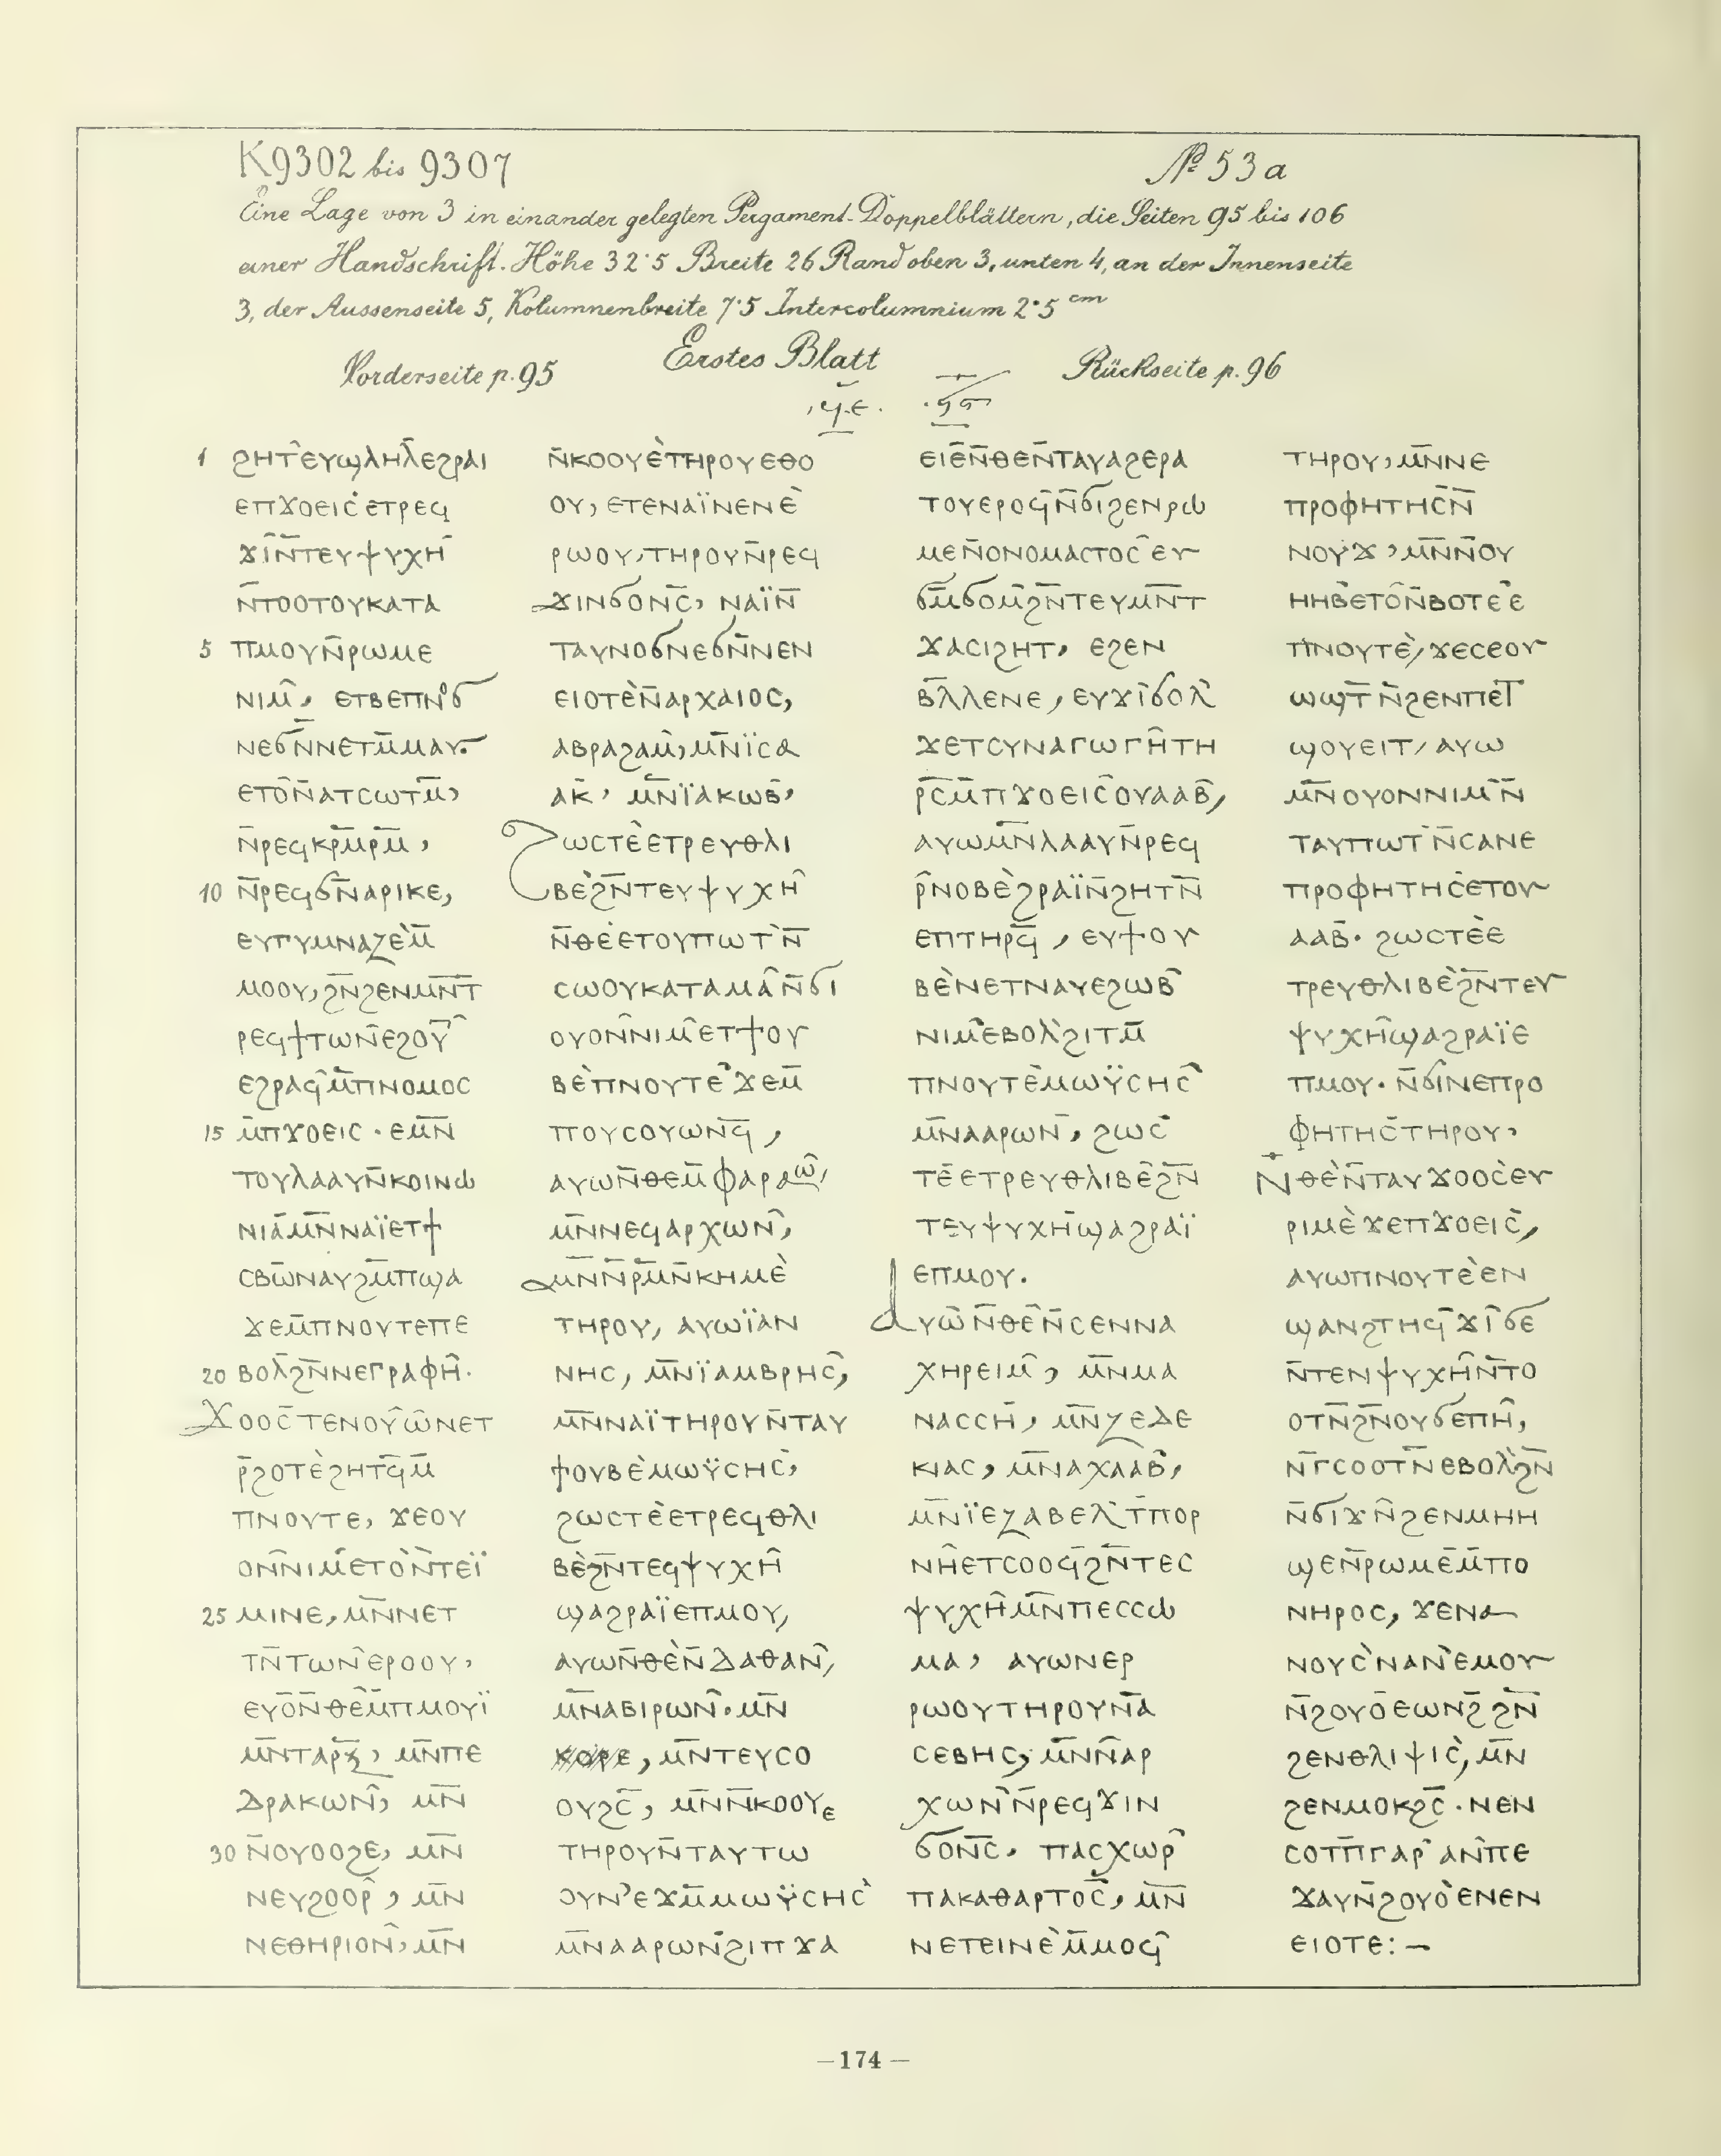 K9302 bis 9307
№ 53a
Eine Lage von 3 in einander gelegten Pergament-Doppelblättern, die Seiten 95 bis 106
einer Handschrift. Höhe 32·5 Breite 26 Rand oben 3, unten 4, an der Innenseite
3, der Aussenseite 5, Kolumnenbreite 7·5 Intercolumnium 2·5 cm
Erstes Blatt
Vorderseite p. 95
Rückseite p. 96
ϥⲉ
ϥⲋ
1 ϩⲏⲧ̂ⲉⲩϣⲗⲏⲗ̄ⲉϩⲣⲁⲓ
ⲉⲡϫⲟⲉⲓⲥ̀ⲉⲧⲣⲉϥ
ϫⲓⲛ̄ⲧⲉⲩⲯⲩⲭⲏ̄
ⲛ̄ⲧⲟⲟⲧⲟⲩⲕⲁⲧⲁ
5 ⲡⲙⲟⲩⲛ̄ⲣⲱⲙⲉ
ⲛⲓⲙ̂, ⲉⲧⲃⲉⲡⲛⲟϭ
ⲛⲉϭⲛ̄ⲛⲉⲧⲙ̄ⲙⲁⲩ·
ⲉⲧⲟ̂ⲛ̄ⲁⲧⲥⲱⲧⲙ̄,
ⲛ̄ⲣⲉϥⲕⲣⲙ̄ⲣⲙ̄,
10 ⲛ̄ⲣⲉϥϭⲛ̄ⲁⲣⲓⲕⲉ,
ⲉⲩⲅⲩⲙⲛⲁⲍⲉ̀ⲙ̄
ⲙⲟⲟⲩ, ϩⲛ̄ϩⲉⲛⲙⲛ̄ⲧ
ⲣⲉϥϯⲧⲱⲛ̄ⲉϩⲟⲩ̄
ⲉϩⲣⲁϥ̂ⲙ̄ⲡⲛⲟⲙⲟⲥ
15 ⲙ̄ⲡϫⲟⲉⲓⲥ · ⲉⲙⲛ̄
ⲧⲟⲩⲗⲁⲁⲩⲛ̄ⲕⲟⲓⲛⲱ
ⲛⲓⲁ̄ⲙⲛ̄ⲛⲁⲓ̈ⲉⲧϯ
ⲥⲃⲱ̄ⲛⲁⲩϩⲙ̄ⲡϣⲁ
ϫⲉⲙ̄ⲡⲛⲟⲩⲧⲉⲡⲉ
20 ⲃⲟⲗ̄ϩⲛ̄ⲛⲉⲅⲣⲁⲫⲏ̂·
ϫⲟⲟⲥ̄ⲧⲉⲛⲟⲩ̂ⲱ̂ⲛⲉⲧ
ⲣ̄ϩⲟⲧⲉ̀ϩⲏⲧϥ̄ⲙ̄
ⲡⲛⲟⲩⲧⲉ, ϫⲉⲟⲩ
ⲟⲛ̄ⲛⲓⲙ̂ⲉⲧⲟ̀ⲛ̀ⲧⲉⲓ̈
25 ⲙⲓⲛⲉ, ⲙⲛ̄ⲛⲉⲧ
ⲧⲛ̄ⲧⲱⲛ̂ⲉⲣⲟⲟⲩ,
ⲉⲩⲟ̄ⲛ̄ⲑⲉ̂ⲙ̄ⲡⲙⲟⲩⲓ̈
ⲙⲛ̄ⲧⲁⲣϫ̄, ⲙⲛ̄ⲡⲉ
ⲇⲣⲁⲕⲱⲛ̂, ⲙⲛ̄
30 ⲛ̄ⲟⲩⲟⲟϩⲉ, ⲙⲛ̄
ⲛⲉⲩϩⲟⲟⲣ̂, ⲙⲛ̄
ⲛⲉⲑⲏⲣⲓⲟⲛ̂, ⲙⲛ̄
ⲛ̄ⲕⲟⲟⲩⲉ̀ⲧⲏⲣⲟⲩⲉⲑⲟ
ⲟⲩ, ⲉⲧⲉⲛⲁⲓ̈ⲛⲉⲛⲉ̀
ⲣⲱⲟⲩ, ⲧⲏⲣⲟⲩⲛ̄ⲣⲉϥ
ϫⲓⲛϭⲟⲛⲥ̄, ⲛⲁⲓ̈ⲛ̄
ⲧⲁⲩⲛⲟϭⲛⲉϭⲛ̄ⲛⲉⲛ
ⲉⲓⲟⲧⲉ̀ⲛ̄ⲁⲣⲭⲁⲓⲟⲥ,
ⲁⲃⲣⲁϩⲁⲙ̂, ⲙⲛ̄ⲓ̈ⲥⲁ
ⲁⲕ̄, ⲙⲛ̄ⲓ̈ⲁⲕⲱⲃ̄,
ϩⲱⲥⲧⲉ̀ⲉⲧⲣⲉⲩⲑⲗⲓ
ⲃⲉ̀ϩⲛ̄ⲧⲉⲩⲯⲩⲭⲏ̂
ⲛ̄ⲑⲉ̀ⲉⲧⲟⲩⲡⲱⲧ̀ⲛ̄
ⲥⲱⲟⲩⲕⲁⲧⲁⲙⲁ̂ⲛ̄ϭⲓ
ⲟⲩⲟⲛ̄ⲛⲓⲙ̂ⲉⲧϯⲟⲩ
ⲃⲉ̀ⲡⲛⲟⲩⲧⲉ̂ϫⲉⲙ̄
ⲡⲟⲩⲥⲟⲩⲱⲛϥ̄,
ⲁⲩⲱⲛ̄ⲑⲉⲙ̄ⲫⲁⲣⲁⲱ̂,
ⲙⲛ̄ⲛⲉϥⲁⲣⲭⲱⲛ̂,
ⲙⲛ̄ⲛ̄ⲣⲙ̄ⲛ̄ⲕⲏⲙⲉ̀
ⲧⲏⲣⲟⲩ, ⲁⲩⲱⲓ̈ⲁⲛ
ⲛⲏⲥ, ⲙⲛ̄ⲓ̈ⲁⲙⲃⲣⲏⲥ̂,
ⲙⲛ̄ⲛⲁⲓ̈ⲧⲏⲣⲟⲩⲛ̄ⲧⲁⲩ
ϯⲟⲩⲃⲉ̀ⲙⲱⲩ̈ⲥⲏⲥ̀,
ϩⲱⲥⲧⲉ̀ⲉⲧⲣⲉϥⲑⲗⲓ
ⲃⲉ̀ϩⲛ̄ⲧⲉϥⲯⲩⲭⲏ̂
ϣⲁϩⲣⲁⲓ̈ⲉⲡⲙⲟⲩ,
ⲁⲩⲱⲛ̄ⲑⲉ̀ⲛ̄ⲇⲁⲑⲁⲛ̂,
ⲙⲛ̄ⲁⲃⲓⲣⲱⲛ̂·ⲙⲛ̄
ⲕⲟⲣⲉ, ⲙⲛ̄ⲧⲉⲩⲥⲟ
ⲟⲩϩⲥ̄, ⲙⲛ̄ⲛ̄ⲕⲟⲟⲩⲉ
ⲧⲏⲣⲟⲩⲛ̄ⲧⲁⲩⲧⲱ
ⲟⲩⲛ̓ⲉϫⲙ̄ⲙⲱⲩ̈ⲥⲏⲥ̀
ⲙⲛ̄ⲁⲁⲣⲱⲛ̄ϩⲓⲡϫⲁ
ⲉⲓⲉ̄ⲛ̄ⲑⲉⲛ̄ⲧⲁⲩⲁϩⲉⲣⲁ
ⲧⲟⲩⲉⲣⲟϥ̄ⲛ̄ϭⲓϩⲉⲛⲣⲱ
ⲙⲉⲛ̄ⲟⲛⲟⲙⲁⲥⲧⲟⲥ̂ⲉⲩ
ϭⲙ̄ϭⲟⲙ̄ϩⲛ̄ⲧⲉⲩⲙⲛ̄ⲧ
ϫⲁⲥⲓϩⲏⲧ, ⲉϩⲉⲛ
ⲃⲗ̄ⲗⲉⲛⲉ, ⲉⲩϫⲓ̄ϭⲟⲗ̀
ϫⲉⲧⲥⲩⲛⲁⲅⲱⲅⲏ̂ⲧⲏ
ⲣ̄ⲥⲙ̄ⲡϫⲟⲉⲓⲥ̂ⲟⲩⲁⲁⲃ̂,
ⲁⲩⲱⲙⲛ̄ⲗⲁⲁⲩⲛ̄ⲣⲉϥ
ⲣ̄ⲛⲟⲃⲉ̀ϩⲣⲁⲓ̈ⲛ̄ϩⲏⲧⲛ̄
ⲉⲡⲧⲏⲣϥ̄, ⲉⲩϯⲟⲩ
ⲃⲉ̀ⲛⲉⲧⲛⲁⲩⲉϩⲱⲃ̂
ⲛⲓⲙ̂ⲉⲃⲟⲗ̀ϩⲓⲧⲙ̄
ⲡⲛⲟⲩⲧⲉ̀ⲙⲱⲩ̈ⲥⲏⲥ̂
ⲙⲛ̄ⲁⲁⲣⲱⲛ̂, ϩⲱⲥ̀
ⲧⲉ̄ⲉⲧⲣⲉⲩⲑⲗⲓⲃⲉ̂ϩⲛ̄
ⲧⲉⲩⲯⲩⲭⲏ̄ϣⲁϩⲣⲁⲓ̈
ⲉⲡⲙⲟⲩ·
ⲁⲩⲱ̂ⲛ̄ⲑⲉ̂ⲛ̄ⲥⲉⲛⲛⲁ
ⲭⲏⲣⲉⲓⲙ̂, ⲙⲛ̄ⲙⲁ
ⲛⲁⲥⲥⲏ̄, ⲙⲛ̄ⲍⲉⲇⲉ
ⲕⲓⲁⲥ, ⲙⲛ̄ⲁⲭⲁⲁⲃ̂,
ⲙⲛ̄ⲓ̈ⲉⲍⲁⲃⲉⲗ̀ⲧ̄ⲡⲟⲣ
ⲛⲏ̂ⲉⲧⲥⲟⲟϥ̄ϩⲛ̄ⲧⲉⲥ
ⲯⲩⲭⲏ̂ⲙⲛ̄ⲡⲉⲥⲥⲱ
ⲙⲁ, ⲁⲩⲱⲛⲉⲣ
ⲣⲱⲟⲩⲧⲏⲣⲟⲩⲛ̄ⲁ
ⲥⲉⲃⲏⲥ, ⲙⲛ̄ⲛ̄ⲁⲣ
ⲭⲱⲛ̀ⲛ̄ⲣⲉϥϫⲓⲛ
ϭⲟⲛⲥ̄, ⲡⲁⲥⲭⲱⲣ̂
ⲡⲁⲕⲁⲑⲁⲣⲧⲟⲥ̄, ⲙⲛ̄
ⲛⲉⲧⲉⲓⲛⲉ̀ⲙ̄ⲙⲟϥ̂
ⲧⲏⲣⲟⲩ, ⲙⲛ̄ⲛⲉ
ⲡⲣⲟⲫⲏⲧⲏⲥ̄ⲛ̄
ⲛⲟⲩϫ, ⲙⲛ̄ⲛ̄ⲟⲩ
ⲏⲏⲃ̀ⲉⲧⲟ̂ⲛ̄ⲃⲟⲧⲉ̀ⲉ̀
ⲡⲛⲟⲩⲧⲉ̀, ϫⲉⲥⲉⲟⲩ
ⲱϣⲧ̄ⲛ̄ϩⲉⲛⲡⲉⲧ̄
ϣⲟⲩⲉⲓⲧ, ⲁⲩⲱ
ⲙⲛ̄ⲟⲩⲟⲛⲛⲓⲙ̀ⲛ̄
ⲧⲁⲩⲡⲱⲧ̀ⲛ̄ⲥⲁⲛⲉ
ⲡⲣⲟⲫⲏⲧⲏⲥ̀ⲉⲧⲟⲩ
ⲁⲁⲃ̄· ϩⲱⲥⲧⲉ̀ⲉ
ⲧⲣⲉⲩⲑⲗⲓⲃⲉ̀ϩⲛ̄ⲧⲉⲩ
ⲯⲩⲭⲏ̂ϣⲁϩⲣⲁⲓ̈ⲉ
ⲡⲙⲟⲩ· ⲛ̄ϭⲓⲛⲉⲡⲣⲟ
ⲫⲏⲧⲏⲥ̄ⲧⲏⲣⲟⲩ,
ⲛⲑⲉ̀ⲛ̄ⲧⲁⲩϫⲟⲟⲥ̀ⲉⲩ
ⲣⲓⲙⲉ̀ϫⲉⲡϫⲟⲉⲓⲥ̄,
ⲁⲩⲱⲡⲛⲟⲩⲧⲉ̀ⲉⲛ
ϣⲁⲛϩⲧⲏϥ̄ϫⲓ̂ϭⲉ
ⲛ̄ⲧⲉⲛⲯⲩⲭⲏ̂ⲛ̄ⲧⲟ
ⲟⲧⲛ̄ϩⲛ̄ⲟⲩϭⲉⲡⲏ̂,
ⲛⲅ̄ⲥⲟⲟⲧⲛ̄ⲉⲃⲟⲗ̀ϩⲛ̄
ⲛ̄ϭⲓϫ̂ⲛ̄ϩⲉⲛⲙⲏⲏ
ϣⲉⲛ̄ⲣⲱⲙⲉ̄ⲙ̄ⲡⲟ
ⲛⲏⲣⲟⲥ, ϫⲉⲛⲁ
ⲛⲟⲩⲥ̀ⲛⲁⲛ̀ⲉⲙⲟⲩ
ⲛ̄ϩⲟⲩⲟ̄ⲉⲱⲛϩ̄ϩⲛ̄
ϩⲉⲛⲑⲗⲓⲯⲓⲥ̀, ⲙⲛ̄
ϩⲉⲛⲙⲟⲕϩⲥ̄·ⲛⲉⲛ
ⲥⲟⲧⲡ̄ⲅⲁⲣ̂ⲁⲛ̂ⲡⲉ
ϫⲁⲩⲛ̄ϩⲟⲩⲟ̀ⲉⲛⲉⲛ
ⲉⲓⲟⲧⲉ:—
–174–